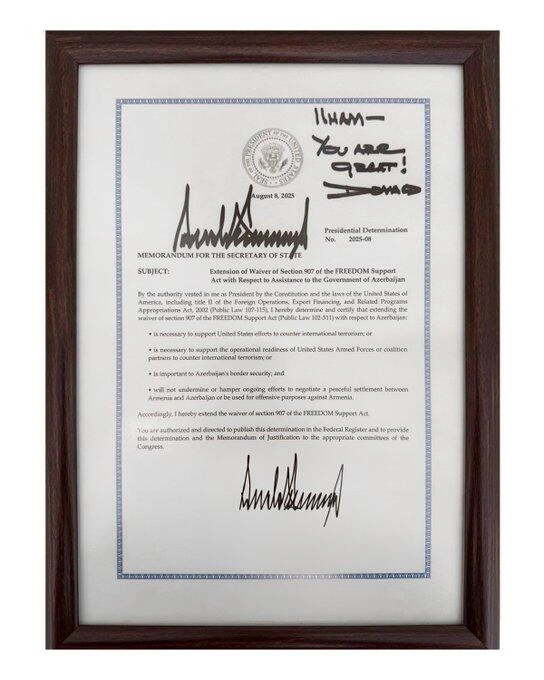 ILHAM—
YOU ARE
GREAT!
DONALD
SEAL OF THE PRESIDENT OF THE UNITED STATES
August 8, 2025
Presidential Determination
No. 2025-08
MEMORANDUM FOR THE SECRETARY OF STATE
SUBJECT: Extension of Waiver of Section 907 of the FREEDOM Support
Act with Respect to Assistance to the Government of Azerbaijan
By the authority vested in me as President by the Constitution and the laws of the United States of
America, including title II of the Foreign Operations, Export Financing, and Related Programs
Appropriations Act, 2002 (Public Law 107-115), I hereby determine and certify that extending the
waiver of section 907 of the FREEDOM Support Act (Public Law 102-511) with respect to Azerbaijan:
• is necessary to support United States efforts to counter international terrorism; or
• is necessary to support the operational readiness of United States Armed Forces or coalition
partners to counter international terrorism; or
• is important to Azerbaijan's border security; and
• will not undermine or hamper ongoing efforts to negotiate a peaceful settlement between
Armenia and Azerbaijan or be used for offensive purposes against Armenia.
Accordingly, I hereby extend the waiver of section 907 of the FREEDOM Support Act.
You are authorized and directed to publish this determination in the Federal Register and to provide
this determination and the Memorandum of Justification to the appropriate committees of the
Congress.